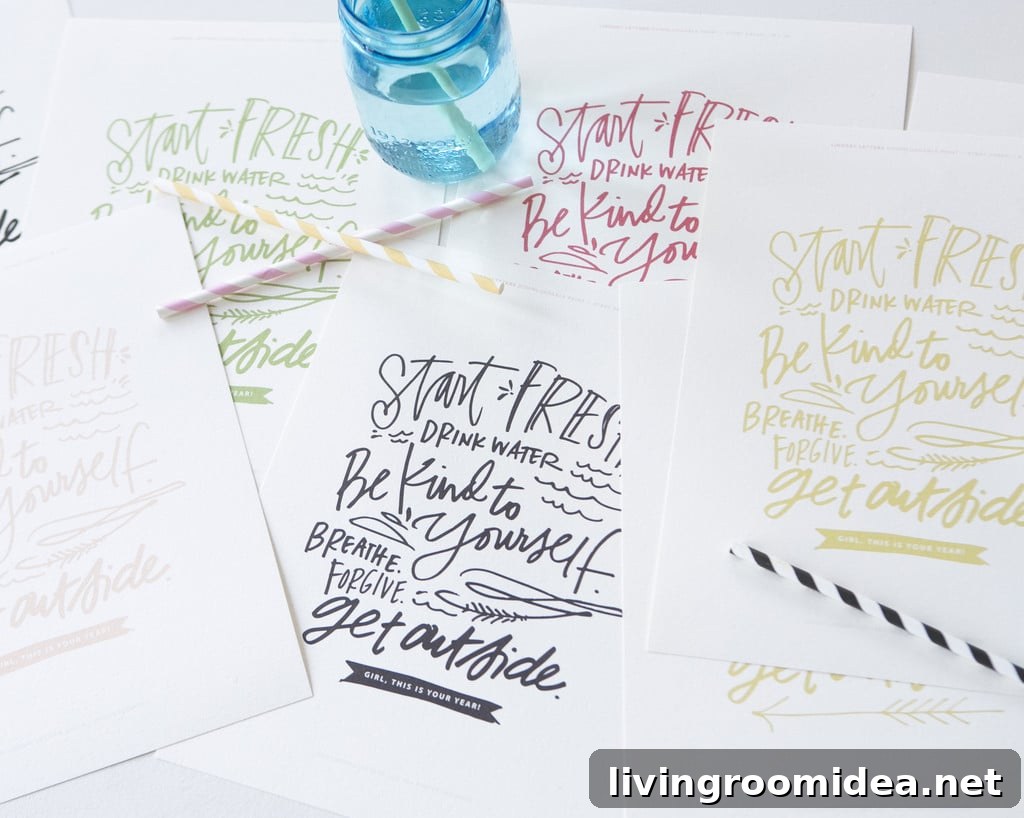 Start FRESH
DRINK WATER
Be Kind to
Yourself.
get outside
YEAR!
Start FR
DRINK WATE
Be Kind to
You
Start FRES
DRINK WATER
Be Kind to
Yourself
BREATHE.
FORGIVE.
get outside
GIRL, THIS IS YOUR YEAR!
FRESH
WATER
to
Yourself.
outside.
GIRL, THIS IS YOUR YEAR!
Start FRESH
DRINK WATER
Be Kind to
Yourself.
BREATHE.
FORGIVE.
get outside.
GIRL, THIS IS YOUR YEAR!
get
livingroomidea.net